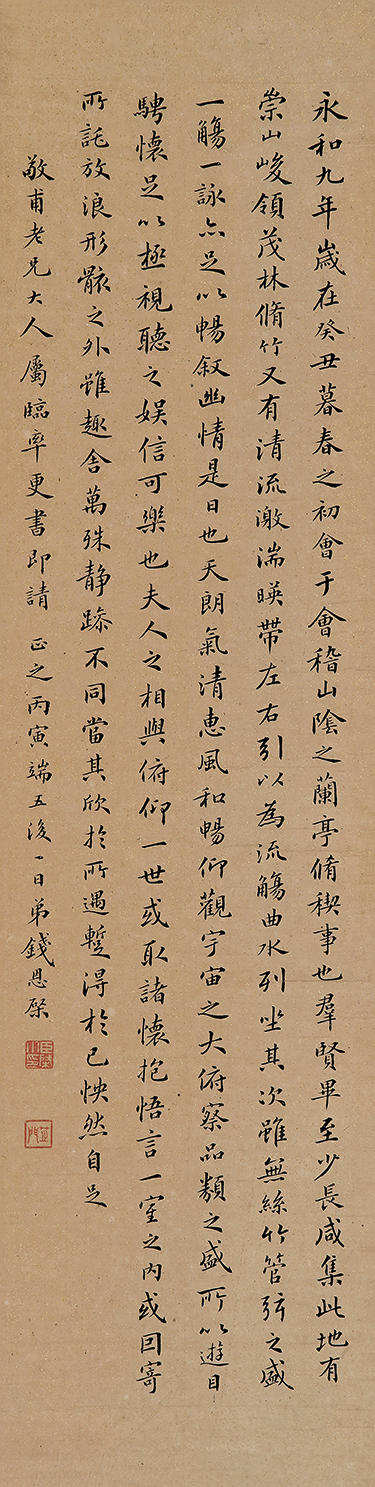 永和九年歲在癸丑暮春之初會于會稽山陰之蘭亭脩稧事也羣賢畢至少長咸集此地有
崇山峻領茂林脩竹又有清流激湍暎帶左右引以為流觴曲水列坐其次雖無絲竹管弦之盛
一觴一詠亦足以暢叙幽情是日也天朗氣清惠風和暢仰觀宇宙之大俯察品類之盛所以遊目
騁懷足以極視聽之娛信可樂也夫人之相與俯仰一世或取諸懷抱悟言一室之內或因寄
所託放浪形骸之外雖趣舍萬殊静躁不同當其欣於所遇蹔得於己怏然自足
敬甫老兄大人屬臨率更書即請正之丙寅端五後一日弟錢恩棨